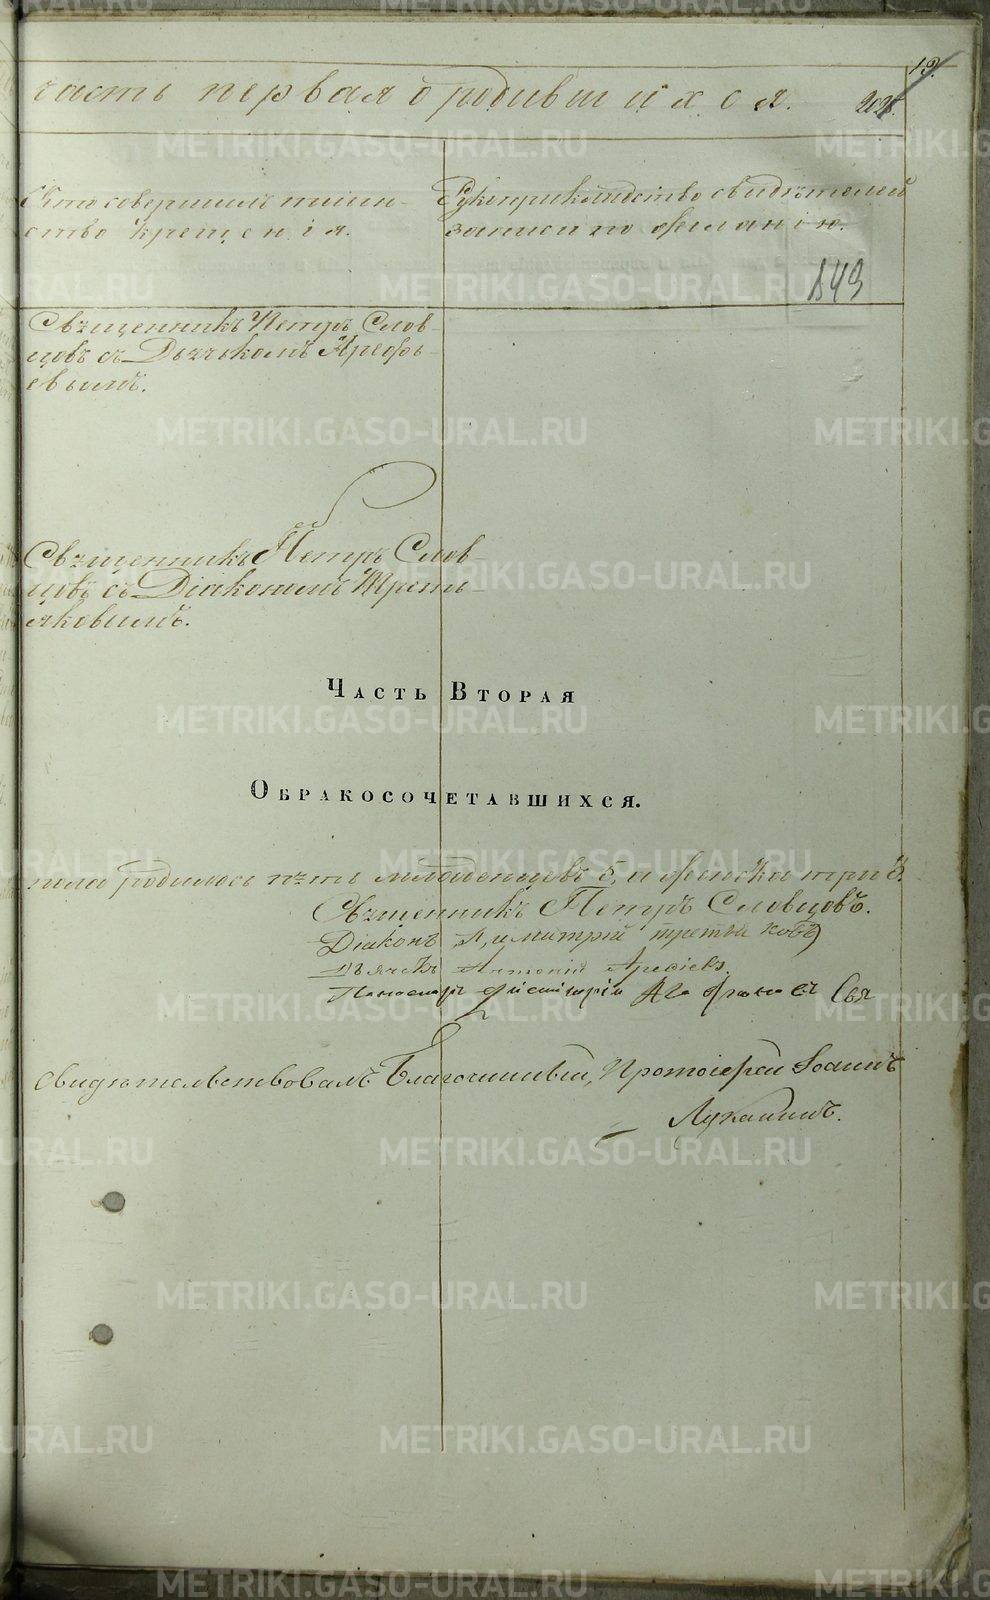 19.
часть первая о родившихся. 202.
Кто совершилъ таин-
ство крещенія.
Рукоприкладство свидѣтелей
записи по желанію.
849
Священникъ Петръ Слов-
цовъ съ Дьячкомъ Арефь-
евымъ.
Священникъ Петръ Слов-
цовъ съ Діакономъ Треть-
яковымъ.
Часть Вторая
Обракосочетавшихся.
пола родилось пять младенцевъ 5, а женска три 3.
Священникъ Петръ Словцовъ.
Діаконъ Димитрій Третьяковъ
Дьячекъ Антоній Арефьевъ
Пономарь
свидѣтельствовалъ Благочинный, Протоіерей Іоаннъ
Лукашинъ.
METRIKI.GASO-URAL.RU